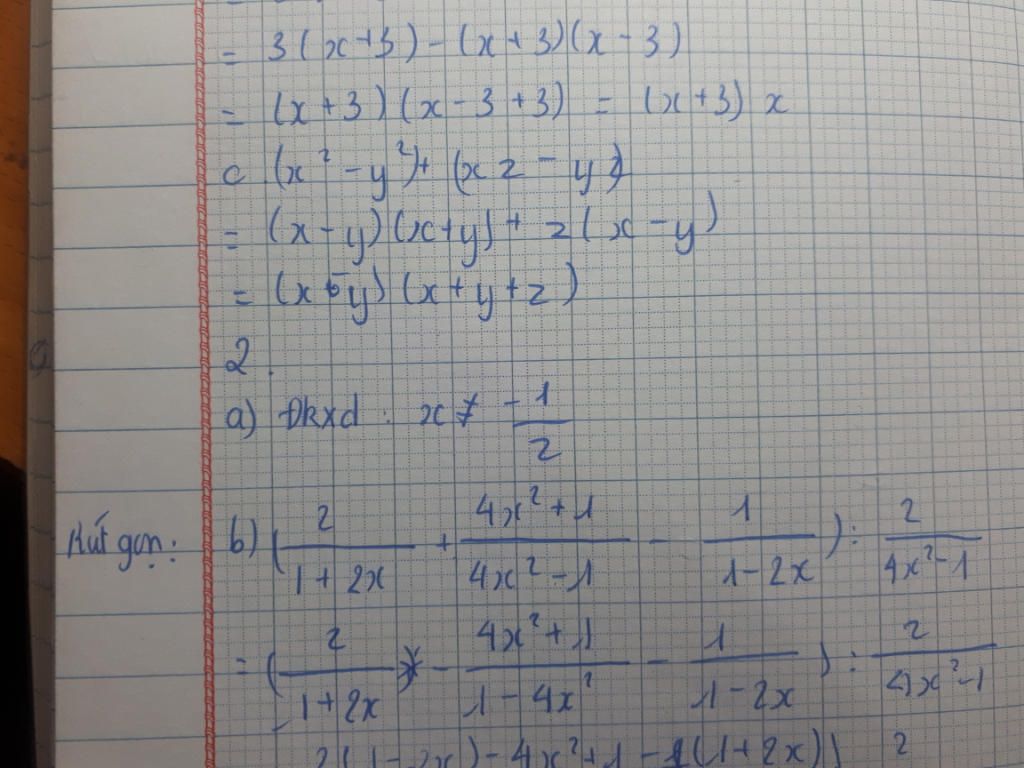 = 3(x+3) - (x+3)(x-3)
= (x+3)(x-3+3) = (x+3) x
c (x² - y²) + (xz - yz)
= (x-y)(x+y) + z(x-y)
= (x-y)(x+y+z)
2.
a) Đkxđ : x ≠ -1/2
Rút gọn: b) (2/(1+2x) + (4x²+1)/(4x²-1) - 1/(1-2x)) : 2/(4x²-1)
= (2/(1+2x) - (4x²+1)/(1-4x²) - 1/(1-2x)) : 2/(4x²-1)
2(1-2x) - 4x²+1 - 1(1+2x)) 2